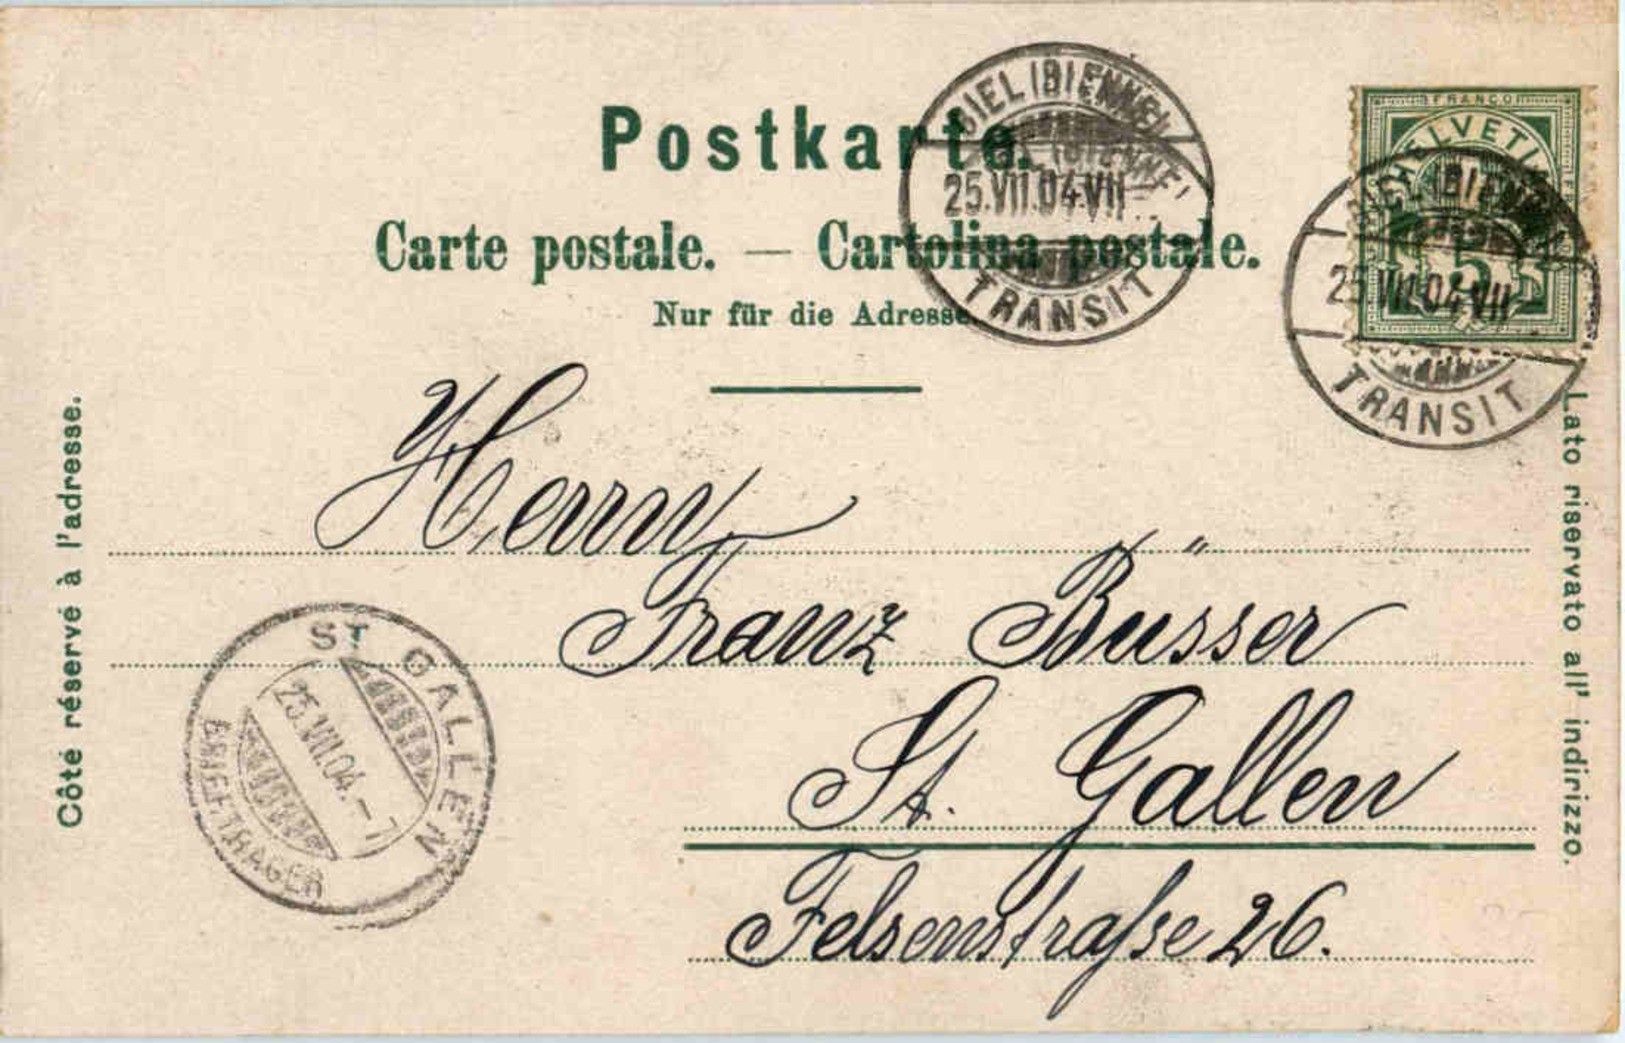 Postkarte.
Carte postale. — Cartolina postale.
Nur für die Adresse
BIEL (BIENNE)
(BIENNE)
25.VII.04.VII
TRANSIT
FRANCO
HELVETIA
5
BIEL (BIENNE)
25.VII.04.VII
TRANSIT
Côté réservé à l'adresse.
Lato riservato all' indirizzo.
Herrn
Franz Büsser
St. Gallen
Felsenstraſse 26.
ST. GALLEN
25.VII.04.–7
BRIEFTRÄGER